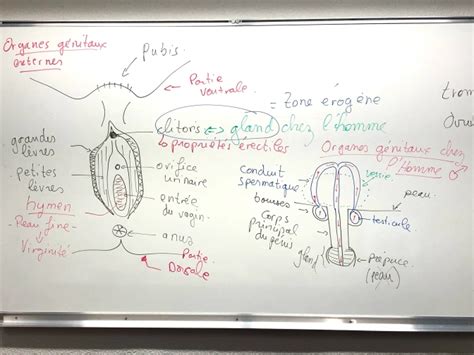 Organes génitaux
externes
pubis
Partie
ventrale
= Zone érogène
clitors <-> gland chez l'homme
↳ propriétés érectiles
grandes
lèvres
petites
lèvres
hymen
- Peau fine -
Virginité
orifice
urinaire
entrée
du vagin
anus
Partie
Dorsale
Organes génitaux chez
l'Homme ♂
Conduit
spermatique
bourses
Corps
principal
du pénis
gland
peau
testicule
Prépuce
(peau)
trom